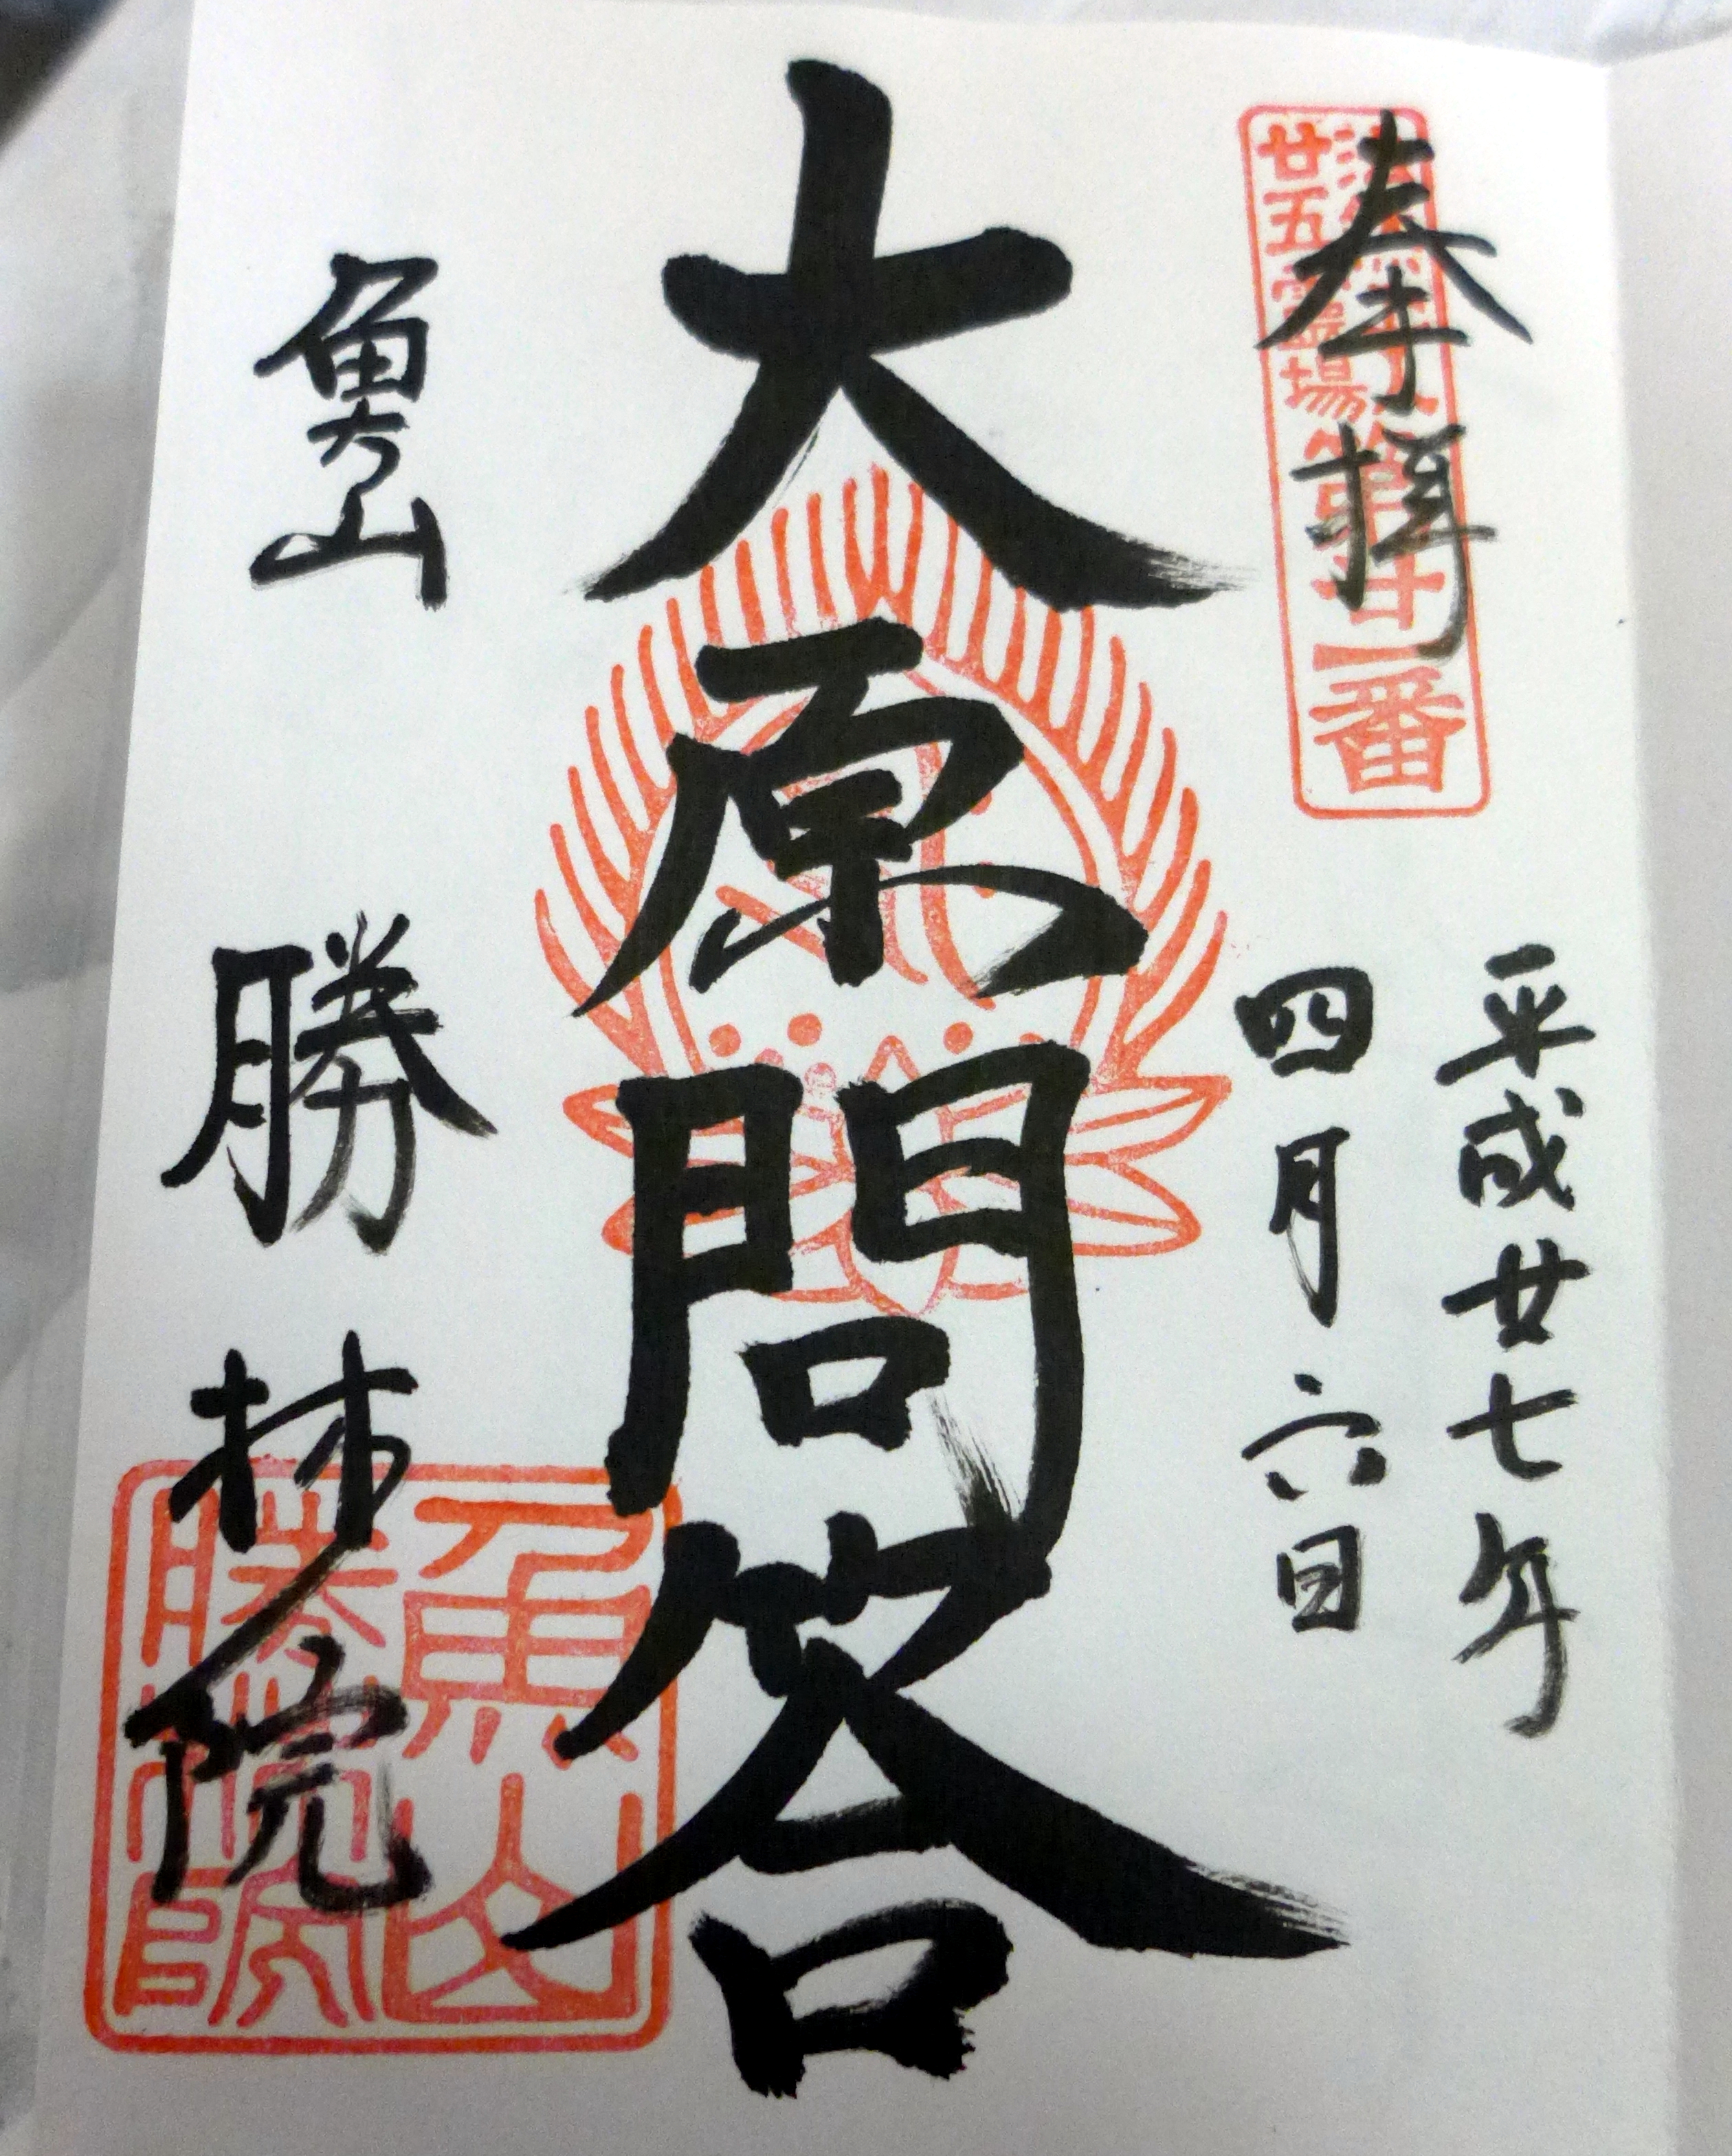 奉拝
法然上人
廿五霊場
第廿一番
平成廿七年
四月六日
大原問答
魚山
勝林院
魚山
勝林院